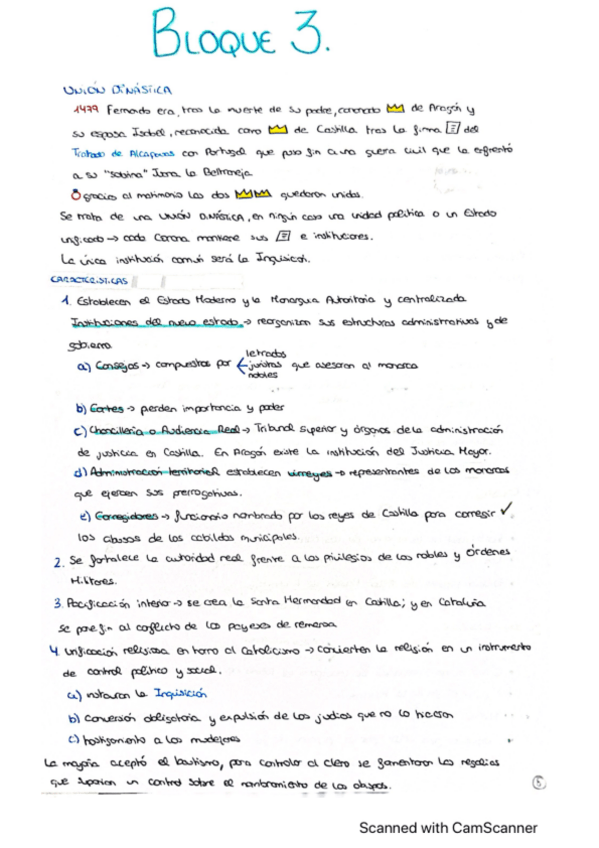 BLOQUE 3.
UNIÓN DINÁSTICA
1479 Fernando era, tras la muerte de su padre, coronado de Aragón y
su esposa Isabel, reconocida como de Castilla tras la firma del
Tratado de Alcaçovas con Portugal que puso fin a una guerra civil que la enfrentó
a su "sobrina" Juana la Beltraneja.
gracias al matrimonio las dos quedaron unidas.
Se trata de una UNIÓN DINÁSTICA, en ningún caso una unidad política o un Estado
unificado → cada Corona mantiene sus e instituciones.
La única institución común será la Inquisición.
CARACTERÍSTICAS
1. Establecen el Estado Moderno y la Monarquía Autoritaria y centralizada
Instituciones del nuevo estado → reorganizan sus estructuras administrativas y de
gobierno
a) Consejos → compuestos por letrados juristas nobles que asesoran al monarca
b) Cortes → pierden importancia y poder
c) Chancillería o Audiencia Real → Tribunal Superior y órganos de la administración
de justicia en Castilla. En Aragón existe la institución del Justicia Mayor.
d) Administración territorial establecen virreyes → representantes de los monarcas
que ejercen sus prerrogativas.
e) Corregidores → funcionario nombrado por los reyes de Castilla para corregir ✓
los abusos de los cabildos municipales.
2. Se fortalece la autoridad real frente a los privilegios de los nobles y Órdenes
Militares.
3. Pacificación interior → se crea la Santa Hermandad en Castilla; y en Cataluña
se pone fin al conflicto de los payeses de remensa.
4. Unificación religiosa en torno al Catolicismo → convierten la religión en un instrumento
de control político y social.
a) instauran la Inquisición
b) Conversión obligatoria y expulsión de los judíos que no lo hicieron
c) hostigamiento a los mudejares
La mayoría aceptó el bautismo, para controlar al clero se fomentaron las regalías
que suponían un control sobre el nombramiento de los obispos.
Scanned with CamScanner